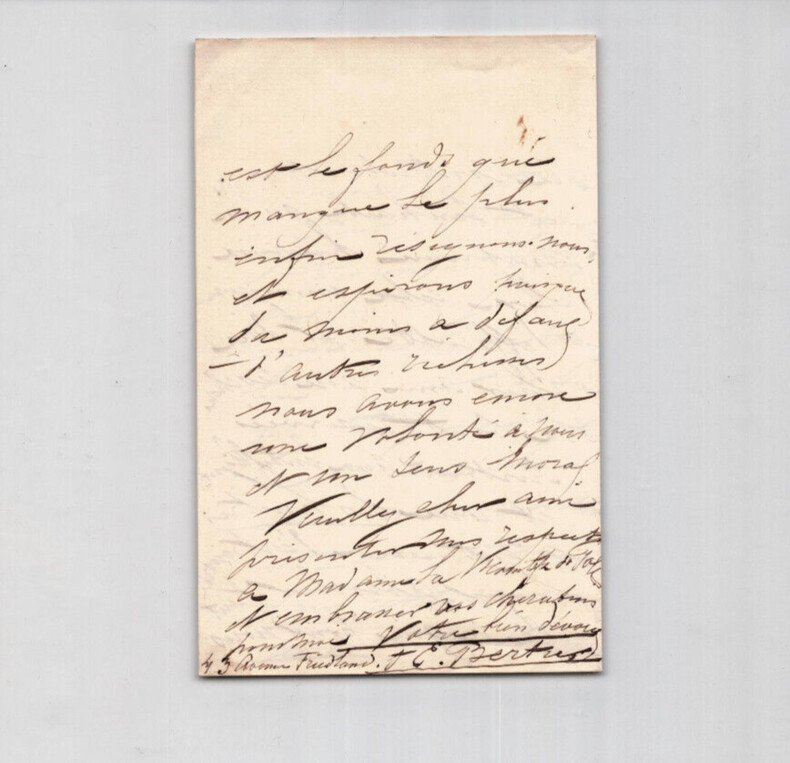 est le fonds qui
manque le plus.
enfin résignons-nous,
et espérons puisque
du moins a defaut
d'autres richesses
nous avons encore
une volonté à nous
et un sens moral
Veuillez cher ami
présenter mes respects
a Madame la Vicomtesse de
et embrasser vos cherubins
pour moi Votre bien dévoué
43 Avenue Friedland. E. Bertrand